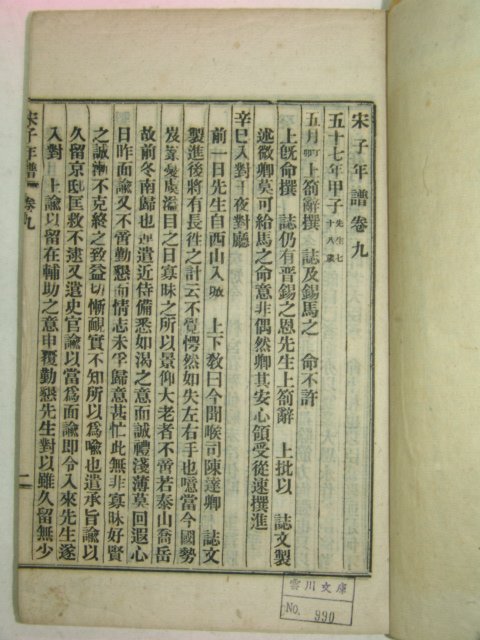 宋子年譜卷九
五十七年甲子先生七十八歲
五月 上箚辭撰 誌及錫馬之 命不許
上旣命撰 誌仍有晋錫之恩先生上箚辭 上批以 誌文製
述微卿莫可給馬之命意非偶然卿其安心領受從速撰進
辛巳入對 夜對廳
前一日先生自西山入城 上下敎曰今聞喉司陳達卿 誌文
製進後將有長徃之計云不覺愕然如失左右手也噫當今國勢
岌嶪憂虞溢目之日寡昧之所以景仰大老者不啻若泰山喬岳
故前冬南歸也 遣近侍備悉如渴之意而誠禮淺薄莫回遐心
日昨面諭又不啻勤懇而情志未孚歸意甚忙此無非寡昧好賢
之誠漸不克終之致益切慚靦實不知所以爲喩也遣承旨諭以
久留京邸匡救不逮又遣史官諭以當爲面諭卽令入來先生遂
入對 上諭以留在輔助之意申覆勤懇先生對以雖久留無少
宋子年譜 卷九
一
雲川文庫
No. 990